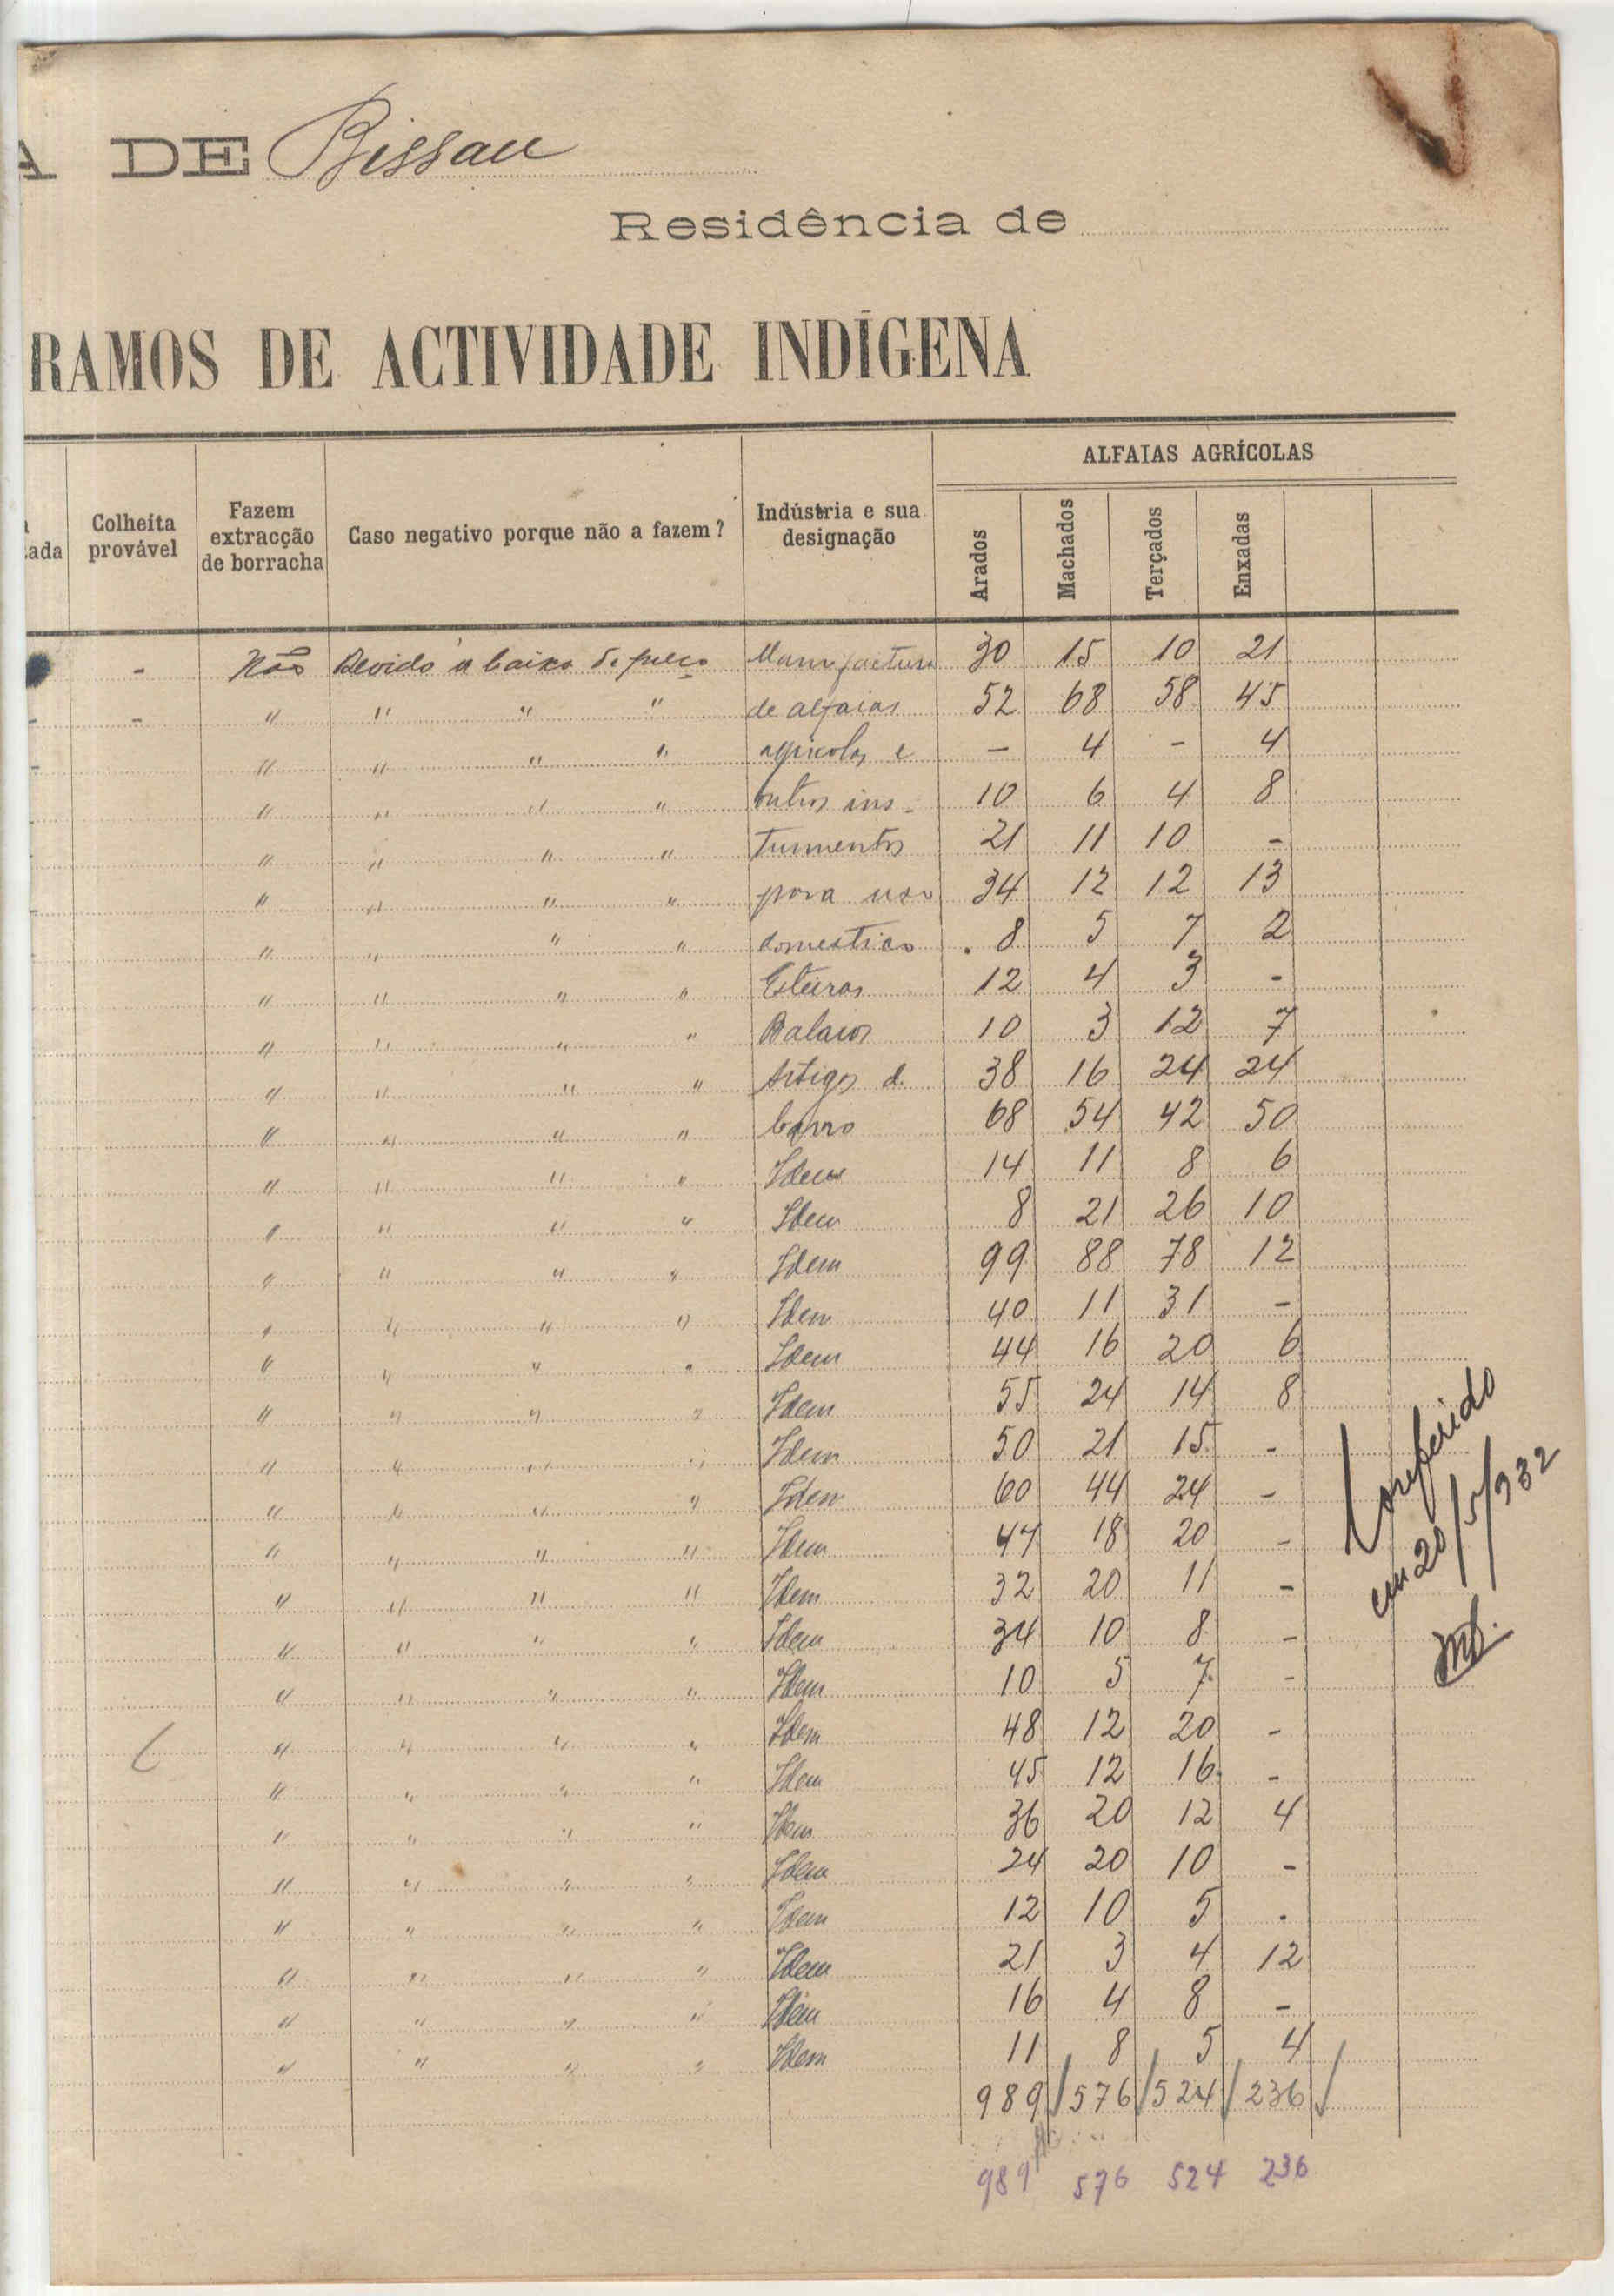 A DE Bissau
Residência de
RAMOS DE ACTIVIDADE INDÍGENA
ada | Colheita provável | Fazem extracção de borracha | Caso negativo porque não a fazem? | Indústria e sua designação | ALFAIAS AGRÍCOLAS
Arados | Machados | Terçados | Enxadas
- | Não | Devido a baixa de preço | Manufactura | 30 | 15 | 10 | 21
- | - | " | " " " | de alfaias | 52 | 68 | 58 | 45
- | " | " " " | agricolas e | - | 4 | - | 4
" | " " " | outros ins- | 10 | 6 | 4 | 8
" | " " " | trumentos | 21 | 11 | 10 | -
" | " " " | para uso | 34 | 12 | 12 | 13
" | " " " | domestico | 8 | 5 | 7 | 2
" | " " " | Esteiras | 12 | 4 | 3 | -
" | " " " | Balaios | 10 | 3 | 12 | 7
" | " " " | Artigos de | 38 | 16 | 24 | 24
" | " " " | barro | 68 | 54 | 42 | 50
" | " " " | Idem | 14 | 11 | 8 | 6
" | " " " | Idem | 8 | 21 | 26 | 10
" | " " " | Idem | 99 | 88 | 78 | 12
" | " " " | Idem | 40 | 11 | 31 | -
" | " " " | Idem | 44 | 16 | 20 | 6
" | " " " | Idem | 55 | 24 | 14 | 8
" | " " " | Idem | 50 | 21 | 15 | -
" | " " " | Idem | 60 | 44 | 24 | -
" | " " " | Idem | 47 | 18 | 20 | -
" | " " " | Idem | 32 | 20 | 11 | -
" | " " " | Idem | 34 | 10 | 8 | -
" | " " " | Idem | 10 | 5 | 7 | -
" | " " " | Idem | 48 | 12 | 20 | -
" | " " " | Idem | 45 | 12 | 16 | -
" | " " " | Idem | 36 | 20 | 12 | 4
" | " " " | Idem | 24 | 20 | 10 | -
" | " " " | Idem | 12 | 10 | 5 | -
" | " " " | Idem | 21 | 3 | 4 | 12
" | " " " | Idem | 16 | 4 | 8 | -
" | " " " | Idem | 11 | 8 | 5 | 4
989 / 576 / 524 / 236 /
989 576 524 236
Conferido
em 20/5/932